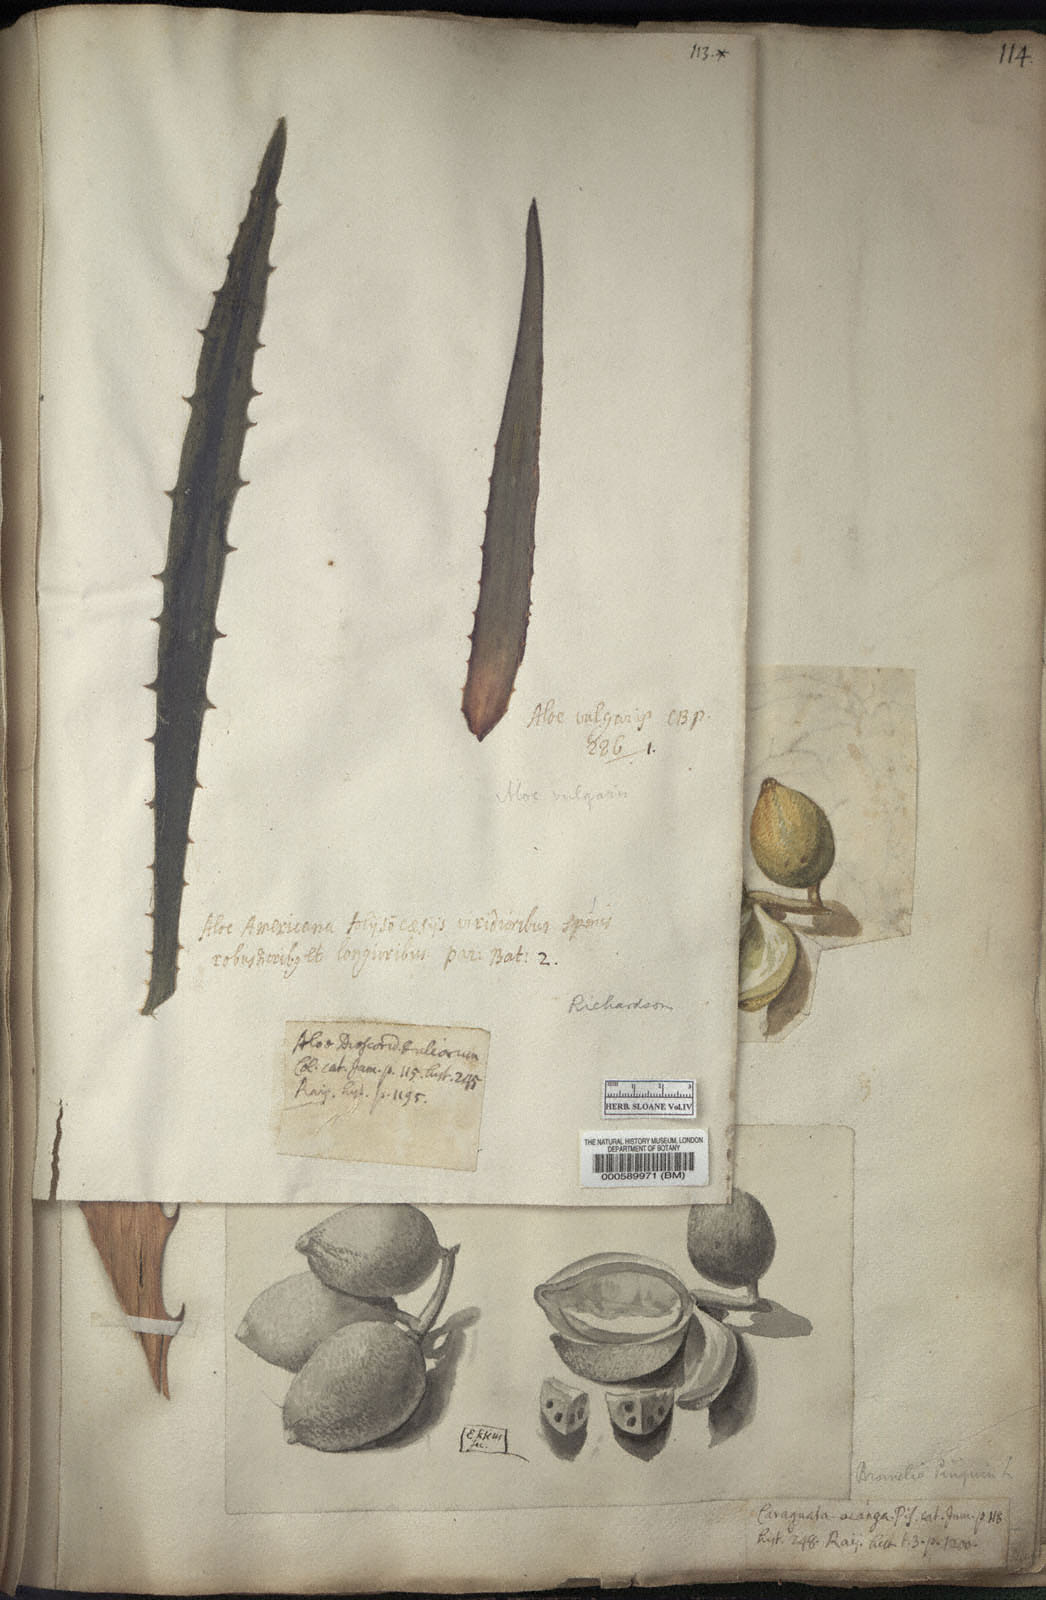 113.*
114.
Aloe vulgaris CBp.
286 1.
Aloe vulgaris
Aloe Americana viridioribus spinis
et longioribus par: Bat: 2.
Richardson
Aloe Dioscorid. & aliorum
cat. Jam. p. 115. hist. 245
Raij. hist. p. 1195.
HERB. SLOANE Vol.IV
THE NATURAL HISTORY MUSEUM, LONDON
DEPARTMENT OF BOTANY
000589971 (BM)
Bromelia Pinguin L
Caraguata-acanga. Pis. cat. Jam. p. 118
hist. 248. Raij. hist. t. 3. p. 1200.